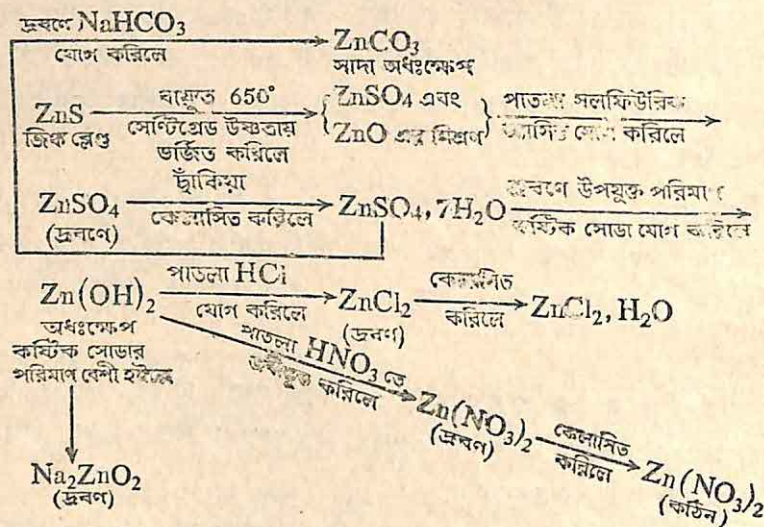 দ্রবণে NaHCO3
যোগ করিলে
ZnCO3
সাদা অধঃক্ষেপ
ZnS
জিঙ্ক ব্লেণ্ড
বায়ুতে 650°
সেন্টিগ্রেড উষ্ণতায়
ভর্জিত করিলে
ZnSO4 এবং
ZnO এর মিশ্রণ
পাতলা সলফিউরিক
অ্যাসিড যোগ করিলে
ZnSO4
(দ্রবণে)
ছাঁকিয়া
কেলাসিত করিলে
ZnSO4, 7H2O
দ্রবণে উপযুক্ত পরিমাণ
কষ্টিক সোডা যোগ করিলে
Zn(OH)2
অধঃক্ষেপ
কষ্টিক সোডার
পরিমাণ বেশী হইলে
পাতলা HCl
যোগ করিলে
ZnCl2
(দ্রবণ)
কেলাসিত
করিলে
ZnCl2, H2O
পাতলা HNO3 তে
দ্রবীভূত করিলে
Zn(NO3)2
(দ্রবণ)
কেলাসিত
করিলে
Zn(NO3)2
(কঠিন)
Na2ZnO2
(দ্রবণ)